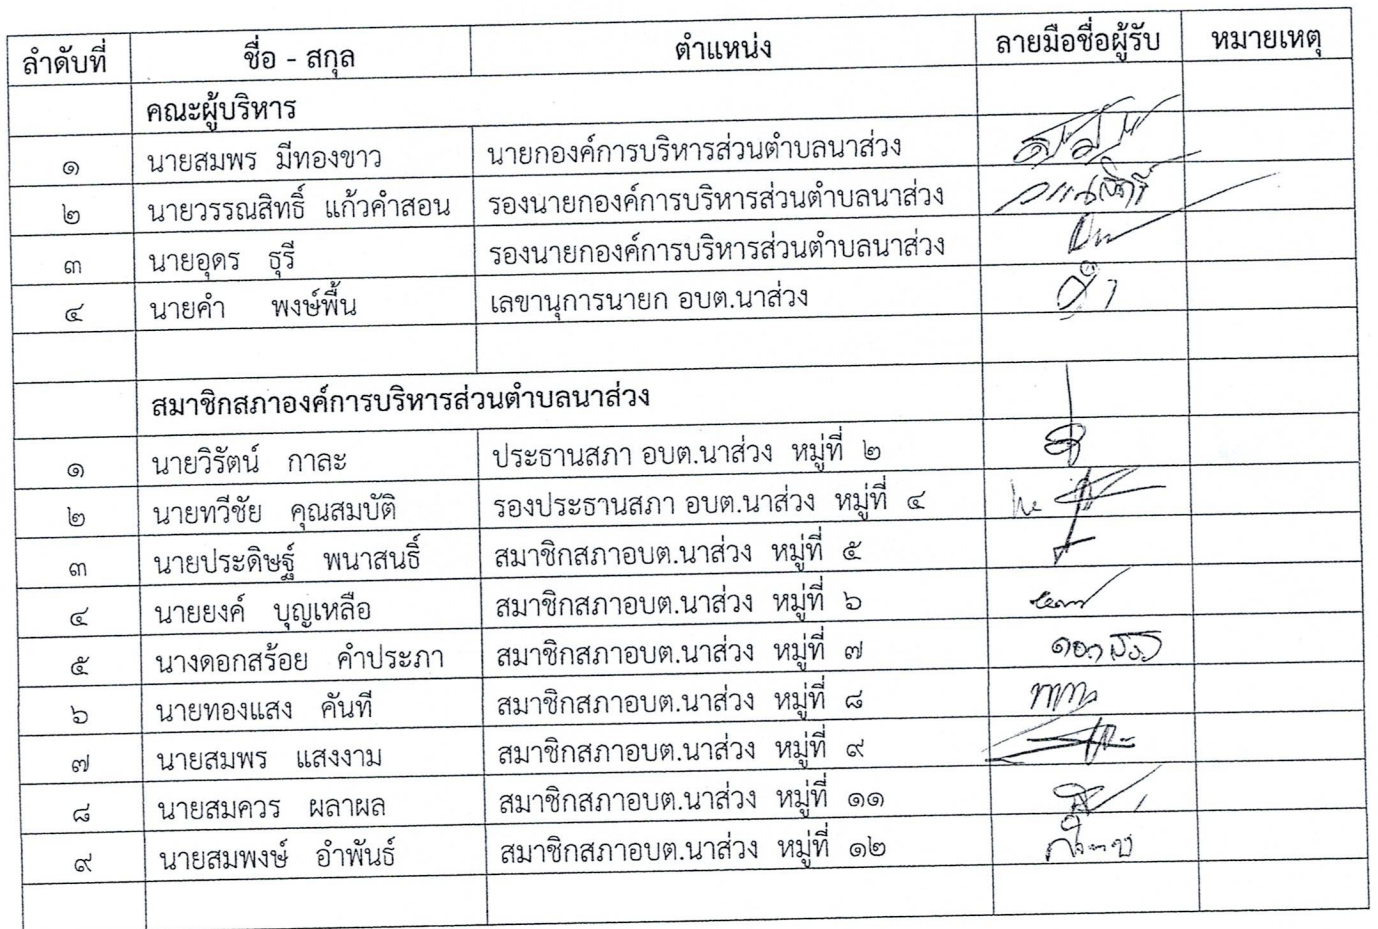 ลำดับที่ ชื่อ - สกุล ตำแหน่ง ลายมือชื่อผู้รับ หมายเหตุ
คณะผู้บริหาร
๑ นายสมพร มีทองขาว นายกองค์การบริหารส่วนตำบลนาส่วง
๒ นายวรรณสิทธิ์ แก้วคำสอน รองนายกองค์การบริหารส่วนตำบลนาส่วง
๓ นายอุดร ธุรี รองนายกองค์การบริหารส่วนตำบลนาส่วง
๔ นายคำ พงษ์พื้น เลขานุการนายก อบต.นาส่วง
สมาชิกสภาองค์การบริหารส่วนตำบลนาส่วง
๑ นายวิรัตน์ กาละ ประธานสภา อบต.นาส่วง หมู่ที่ ๒
๒ นายทวีชัย คุณสมบัติ รองประธานสภา อบต.นาส่วง หมู่ที่ ๔
๓ นายประดิษฐ์ พนาสนธิ์ สมาชิกสภาอบต.นาส่วง หมู่ที่ ๕
๔ นายยงค์ บุญเหลือ สมาชิกสภาอบต.นาส่วง หมู่ที่ ๖
๕ นางดอกสร้อย คำประภา สมาชิกสภาอบต.นาส่วง หมู่ที่ ๗
๖ นายทองแสง คันที สมาชิกสภาอบต.นาส่วง หมู่ที่ ๘
๗ นายสมพร แสงงาม สมาชิกสภาอบต.นาส่วง หมู่ที่ ๙
๘ นายสมควร ผลาผล สมาชิกสภาอบต.นาส่วง หมู่ที่ ๑๑
๙ นายสมพงษ์ อำพันธ์ สมาชิกสภาอบต.นาส่วง หมู่ที่ ๑๒